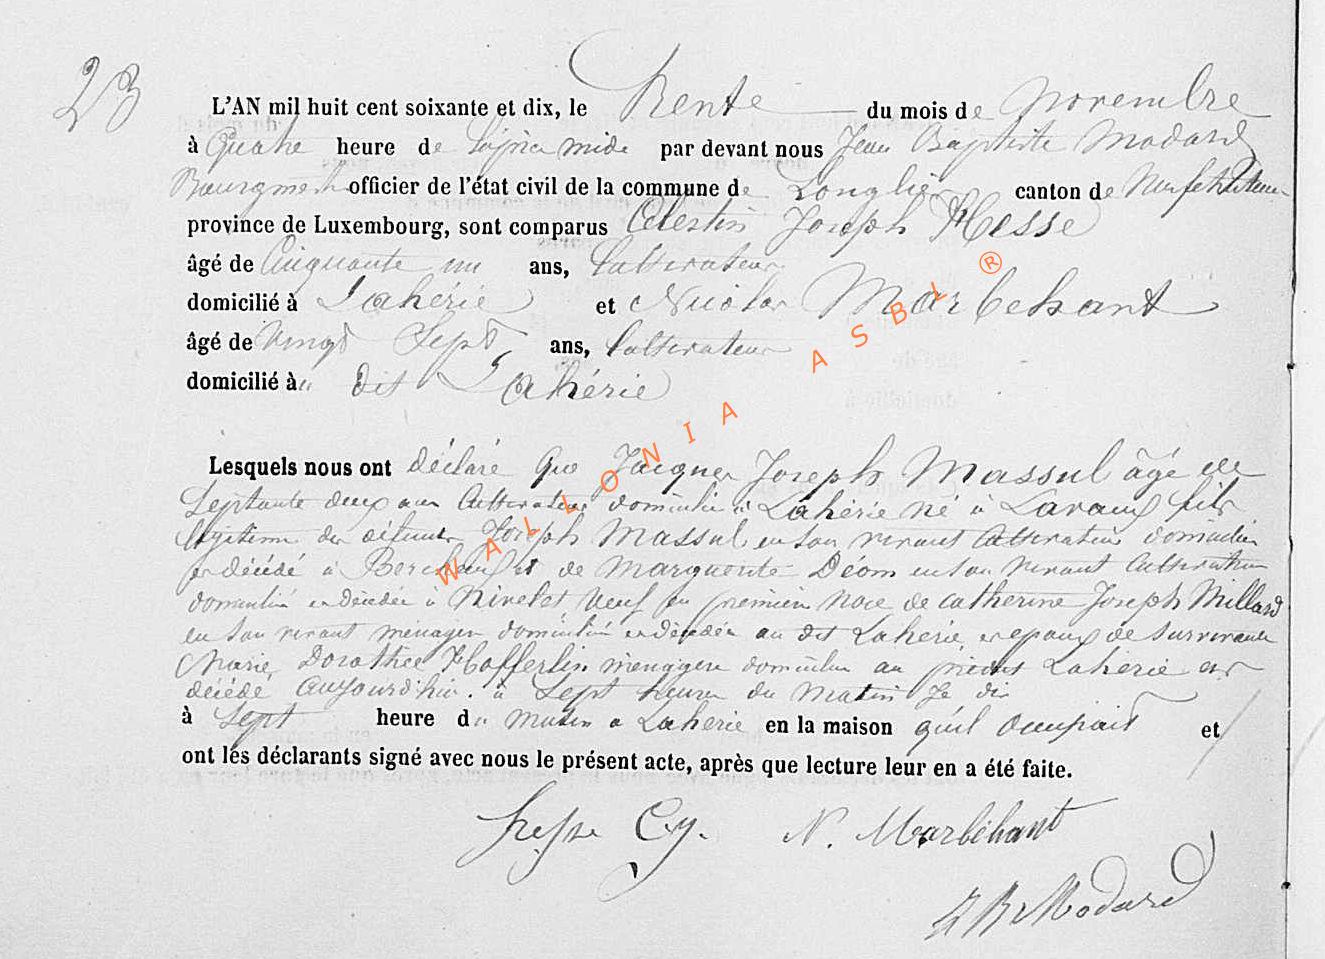 23
L'AN mil huit cent soixante et dix, le trente du mois de novembre
à quatre heure de l'après midi par devant nous Jean Baptiste Modard
Bourgmestre officier de l'état civil de la commune de Longlier canton de Neufchateau
province de Luxembourg, sont comparus Celestin Joseph Hesse
âgé de Cinquante un ans, Cultivateur
domicilié à Lahérie et Nicolas Marbehant
âgé de vingt Sept ans, Cultivateur
domicilié à dit Lahérie
Lesquels nous ont déclaré que Jacques Joseph Massul âgé de
Septante deux ans Cultivateur domicilié à Lahérie né à Lavaux fils
légitime des défunts Joseph Massul en son vivant Cultivateur domicilié
et décédé à Bercheux et de Marguerite Deom en son vivant Cultivateur
domiciliée et décédée à Nivelet, veuf en première noce de catherine Joseph Millard
en son vivant ménagère domiciliée et décédée au dit Laherie, et epoux de survivante
Marie Dorothée Hofferlin ménagère domiciliée au Laherie est
décédé, aujourd'hui à Sept heures du matin Je dis
à Sept heure du matin a Laherie en la maison qu'il occupait et
ont les déclarants signé avec nous le présent acte, après que lecture leur en a été faite.
hesse Cy. N. Marbéhant
J B Modard
WALLONIA ASBL ®